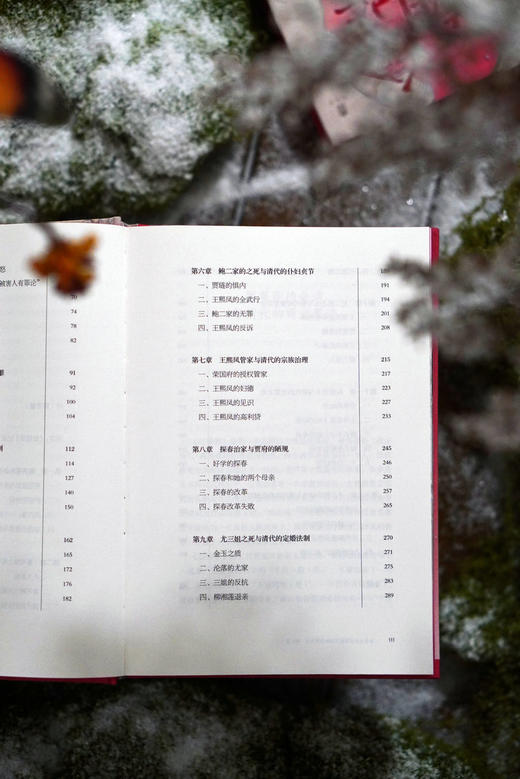 怒
被害人有罪论”
70
74
78
82
91
92
100
104
112
114
127
140
150
162
165
172
176
182
第六章 鲍二家的之死与清代的仆妇贞节
一、贾琏的惧内 191
二、王熙凤的全武行 194
三、鲍二家的无罪 201
四、王熙凤的反诉 208
第七章 王熙凤管家与清代的宗族治理 215
一、荣国府的授权管家 217
二、王熙凤的妇德 223
三、王熙凤的见识 227
四、王熙凤的高利贷 233
第八章 探春治家与贾府的陋规 245
一、好学的探春 246
二、探春和她的两个母亲 250
三、探春的改革 257
四、探春改革失败 265
第九章 尤三姐之死与清代的定婚法制 270
一、金玉之质 271
二、沦落的尤家 275
三、三姐的反抗 283
四、柳湘莲退亲 289